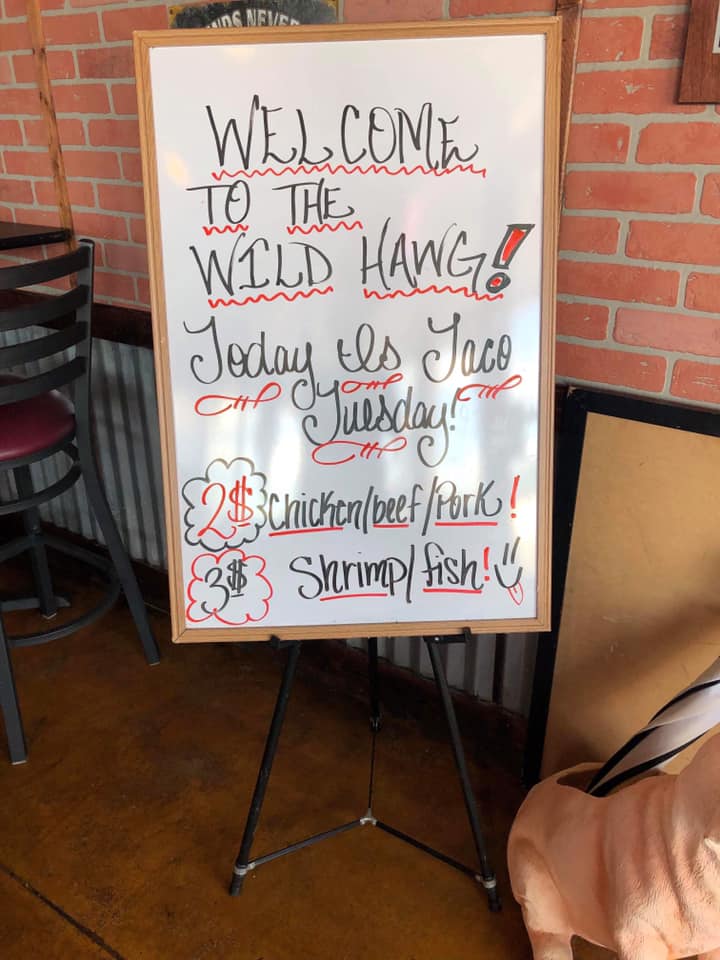 NDS NEVE
WELCOME
TO THE
WILD HAWG!
Today Is Taco
Tuesday!
2$ Chicken/beef/Pork!
3$ Shrimp/fish!